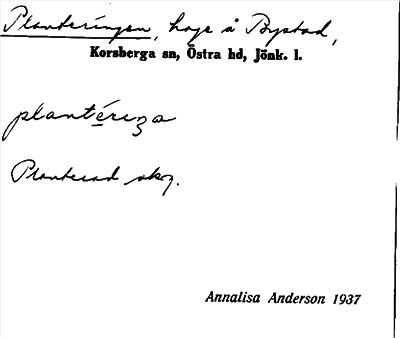 Planteringen, hage å Bystad,
Korsberga sn, Östra hd, Jönk. l.
plantériṇa
Planterad skog.
Annalisa Anderson 1937